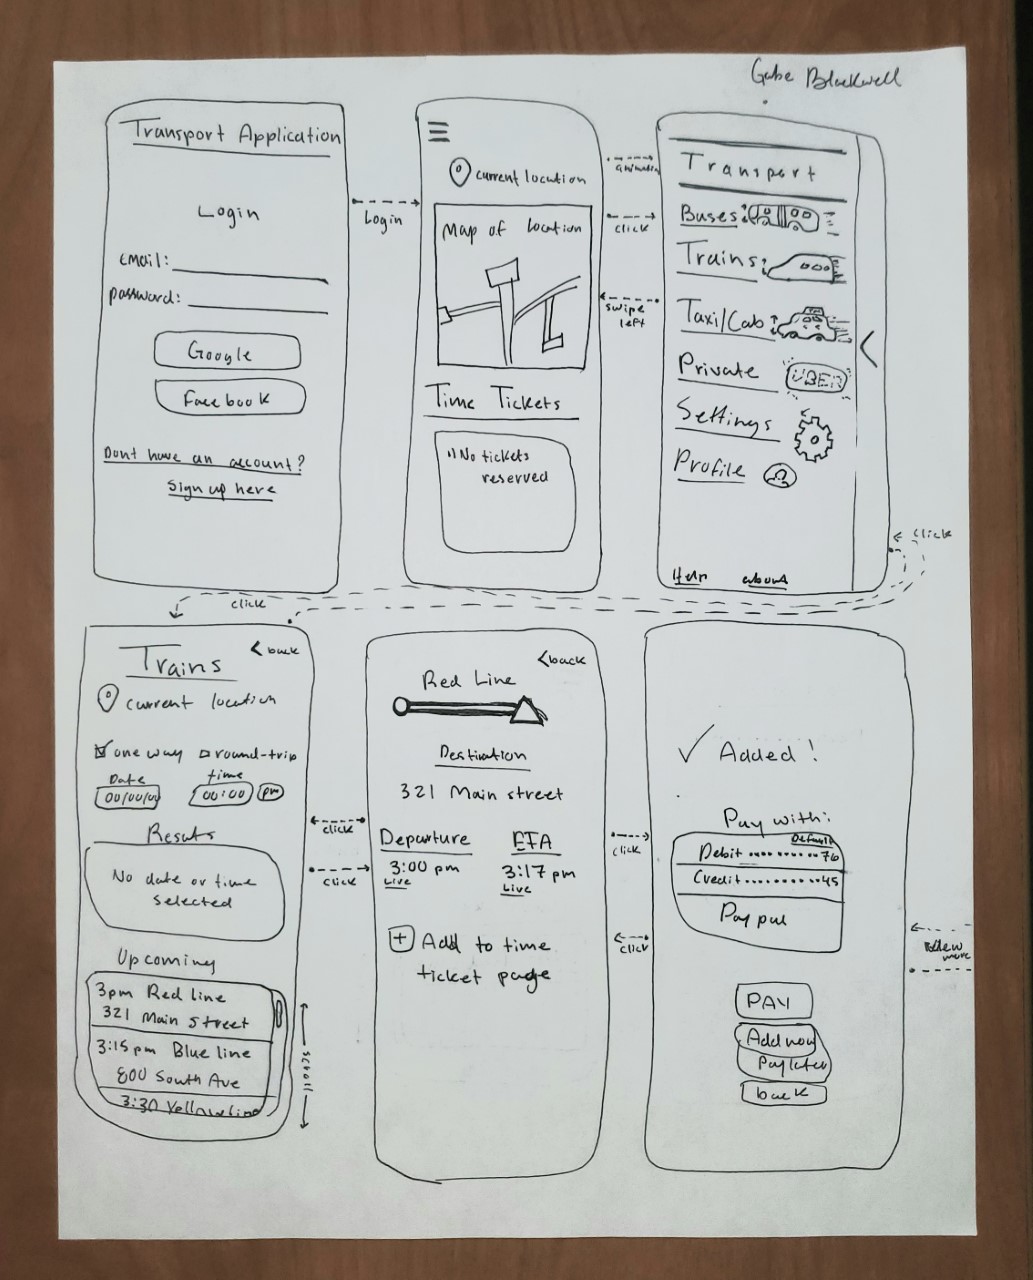 Gabe Blackwell
Transport Application
Login
Email:
password:
Google
Facebook
Dont have an account?
Sign up here
Login
current location
Map of location
Time Tickets
"No tickets
reserved
click
swipe
left
Transport
Buses:
Trains:
Taxi/Cab
Private
UBER
Settings
Profile
Help
about
click
click
Trains
<back
current location
one way
round-trip
Date
time
00/00/00
00:00
pm
Results
No date or time
selected
Upcoming
3pm Red line
321 Main street
3:15 pm Blue line
800 South Ave
3:30 Yellow line
scroll
click
click
<back
Red Line
Destination
321 Main street
Departure
ETA
3:00 pm
3:17 pm
Live
Live
+ Add to time
ticket page
click
click
✓ Added!
Pay with:
Default
Debit ........76
Credit .........45
Paypal
PAY
Add now
Pay later
back
more